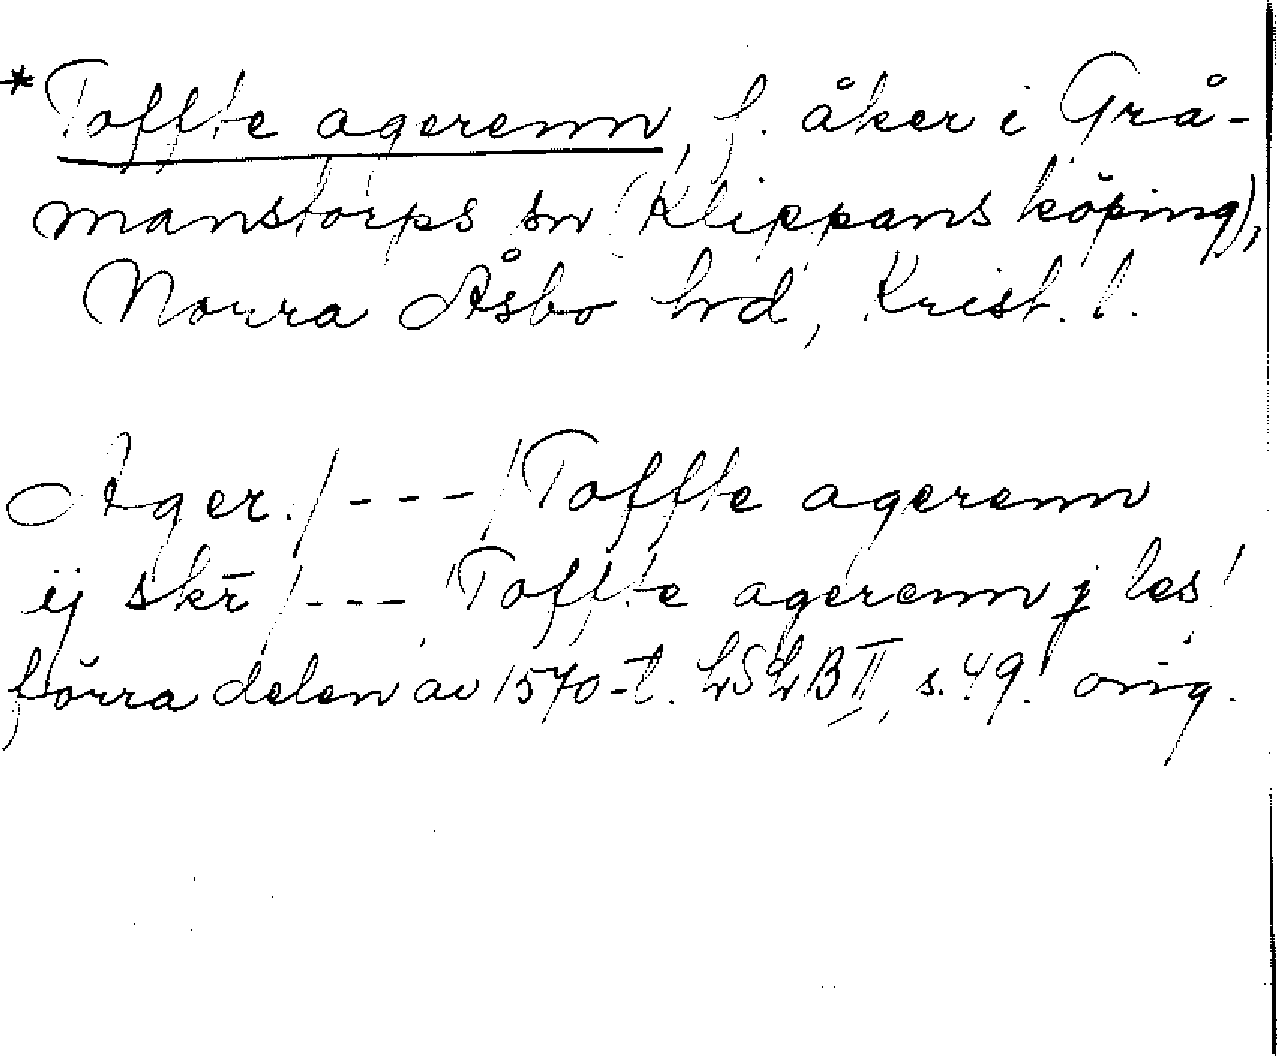 *Toffte agerenn, f. åker i Grå-
manstorps sn (Klippans köping),
Norra Åsbo hd, Krist. l.
Ager. /---/ Toffte agerenn
ij skr̄ /---/ Toffte agerenn j les!
förra delen av 1570-t. LSLB II, s. 49. orig.